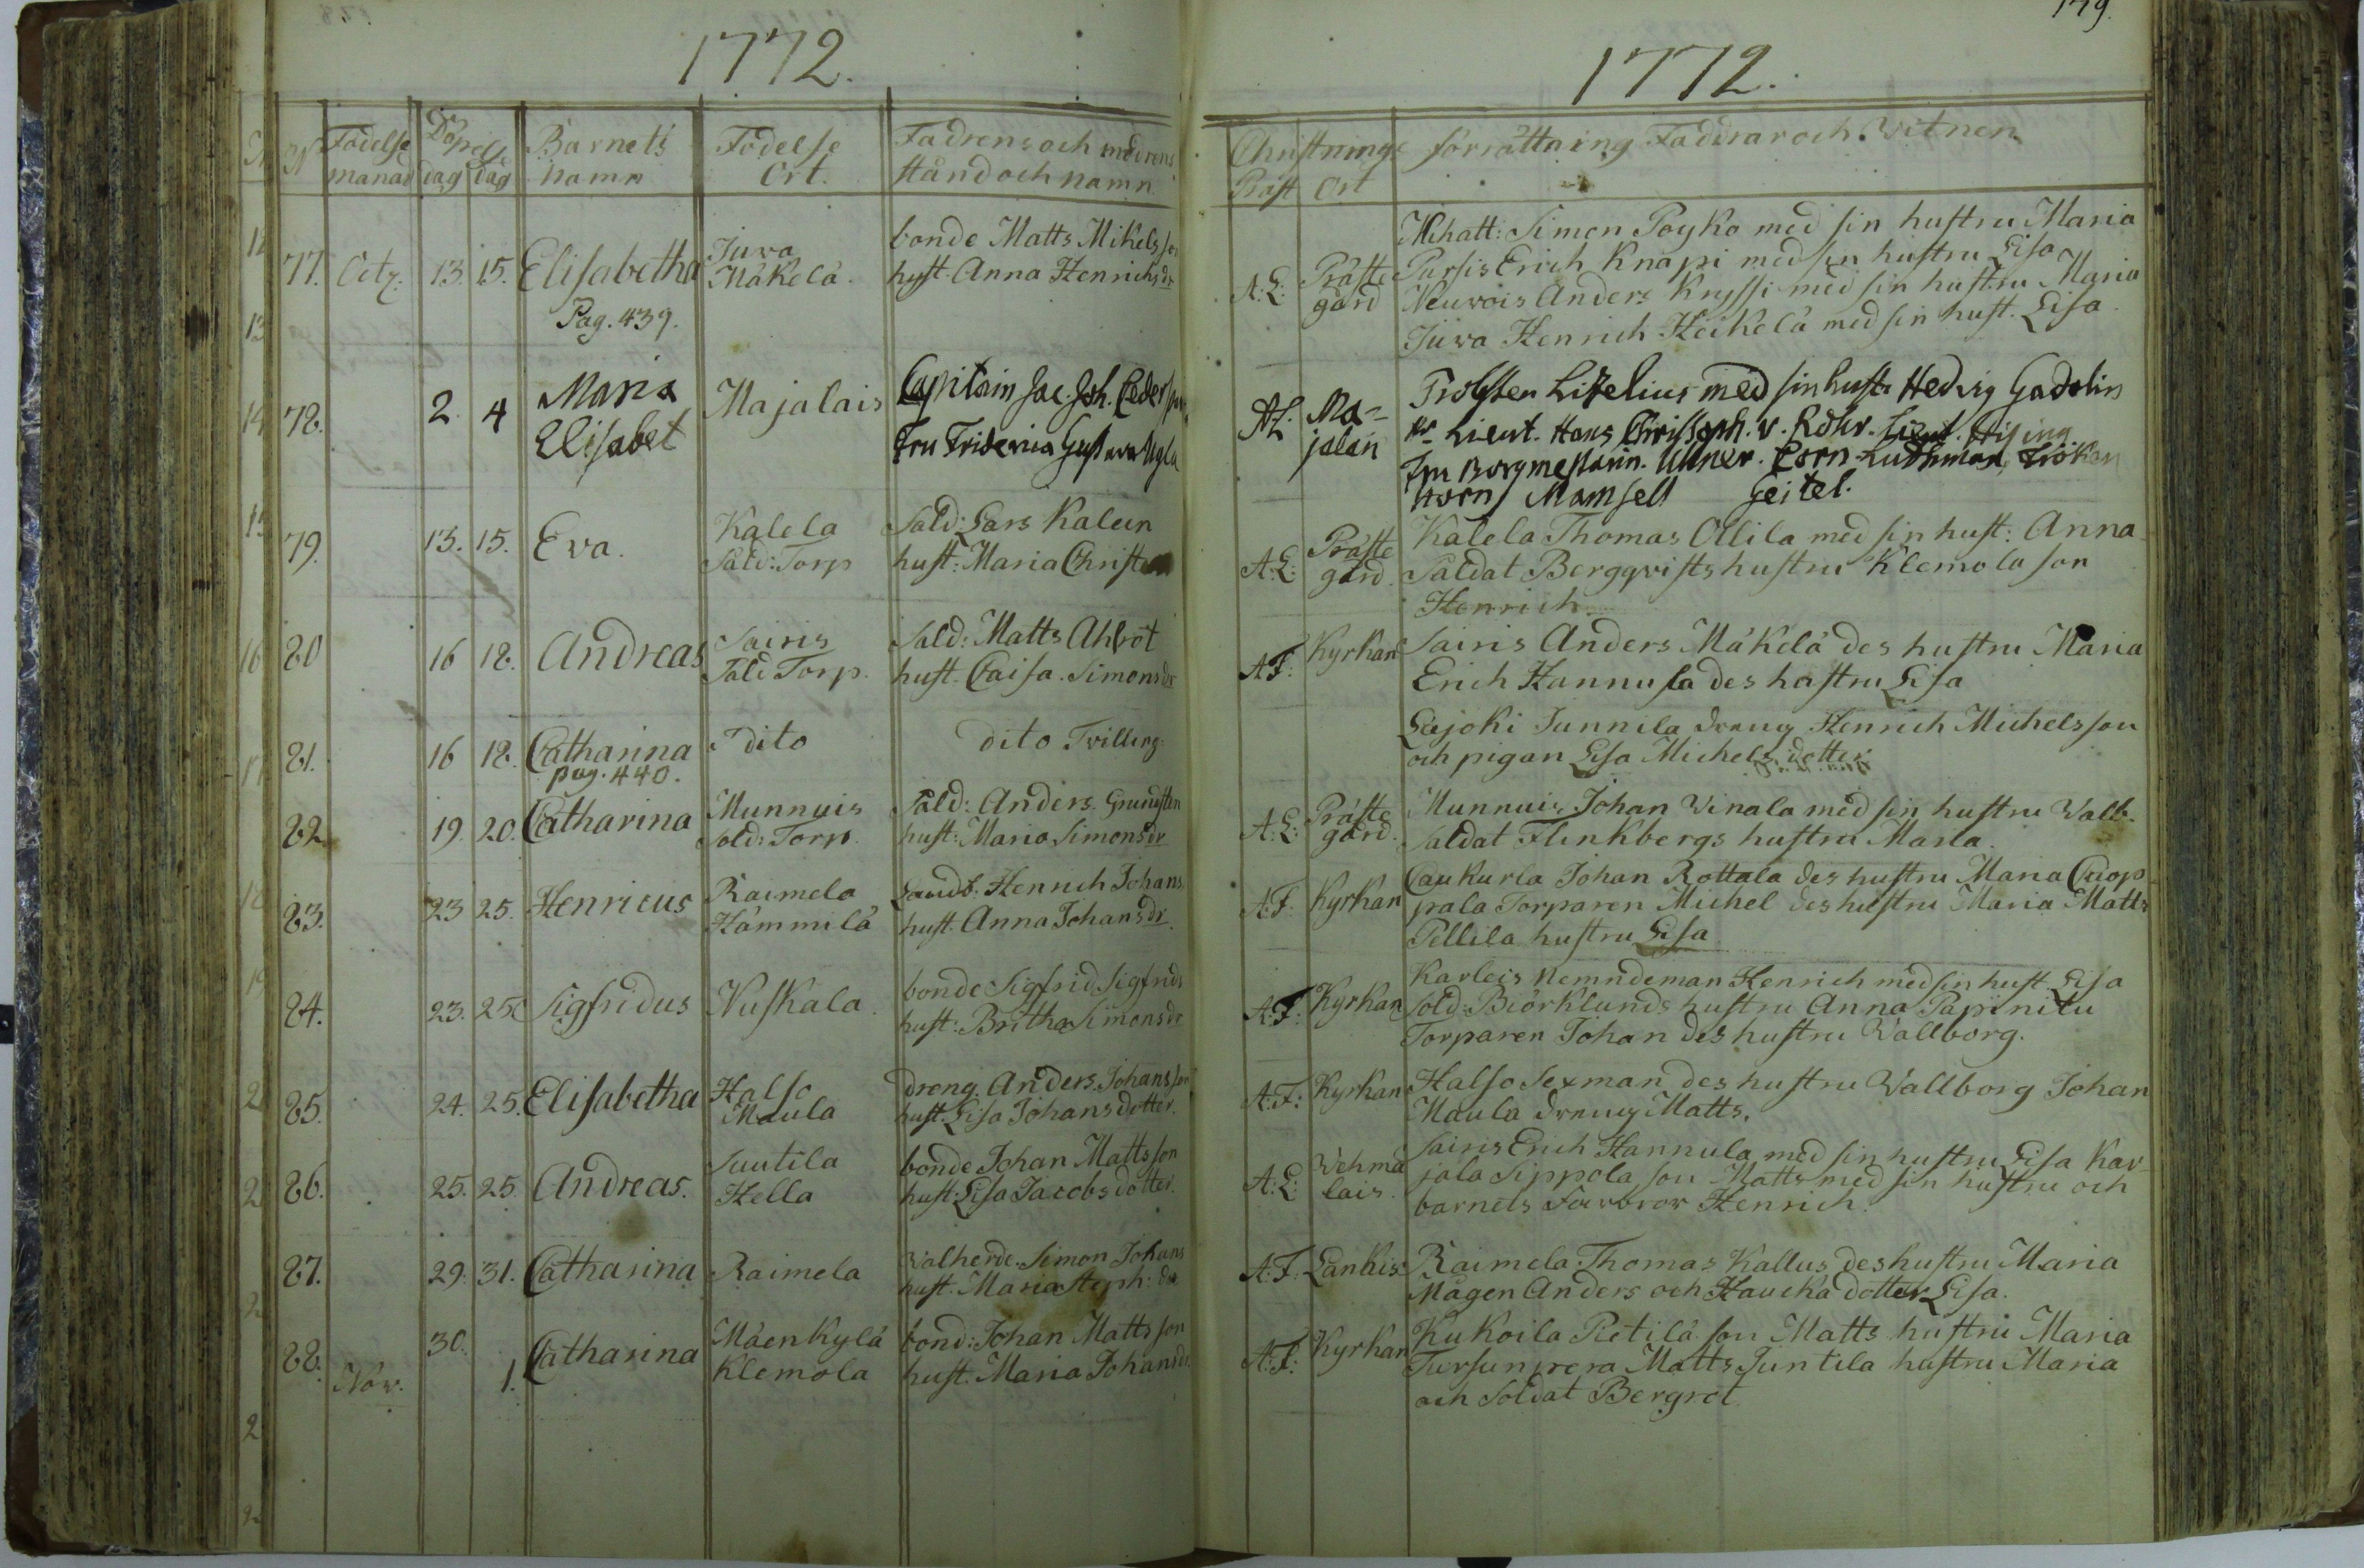 1772.
N
Födelse
månad
dag
Döpelse
dag
Barnets
namn
Födelse
Ort.
Fadrens och modrens
stånd och namn
77. Octz. 13. 15. Elisabetha
Pag. 439.
Juva
Mäkelä.
bonde Matts Mikelsson
hust. Anna Henrichsdr
78. 2. 4 Maria
Elisabet
Majalais
Capitain Jac. Joh.
Fru Friderica Gustava Ugla
79. 13. 15. Eva.
Kalela
Sald: Torp
Sald: Lars Kaleen
hust: Maria
80 16 18. Andreas
Sairis
Sald Torp.
Sald: Matts Ahlröt
hust. Caisa. Simonsdr
81. 16 18. Catharina
pag. 440.
dito
dito Tvilling
82 19. 20. Catharina
Munnuis
Sold: Torp.
Sald: Anders. Grundsten
hust: Maria Simonsdr
83. 23 25. Henricus
Raimela
Hämmilä
Landb. Henrich Johans
hust. Anna Johansdr.
84. 23. 25 Sigfridus
Nuskala.
bonde Sigfrid Sigfrids
hust: Britha Simonsdr
85. 24. 25. Elisabetha
Halso
Maula
dreng. Anders. Johansson
hust. Lisa Johansdotter.
86. 25. 25 Andreas.
Suutila
Hella
bonde Johan Mattsson
hust: Lisa Jacobsdotter.
87. 29. 31. Catharina
Raimela
Valherde. Simon Johans
hust. Maria Steph: dr
88. Nov. 30. 1. Catharina
Mäenkylä
Klemola
bond: Johan Mattsson
hust. Maria Johansdr
179.
1772.
Christnings förrättning Faddrar och Vitnen
Präst Ort
A: L: Präste
gård
Mihatt: Simon Poyko med sin hustru Maria
Pursis Erich Knapi med sin hustru Lisa
Neuvois Anders Kryssi med sin hustru Maria
Juva Henrich Heikelä med sin hust. Lisa.
AL. Ma-
jalan
Probsten Lizelius med sin hust. Hedvig Gadolin
Lieut. Hans Christoph. v. Röhr. Lieut. Hising
Fru Borgmestarin. Corn. Fröken
Horn Mamsell Geitel.
A: L: Präste
gård.
Kalela Thomas Ollila med sin hust: Anna
Saldat Bergqvists hustru Klemola son
Henrich
A F: Kyrkan Sairis Anders Mäkelä des hustru Maria
Erich Hannula des hustru Lisa
Leijoki Junnila dreng Henrich Michelsson
och pigan Lisa Michelsdotter
A: L: Präste
gård.
Munnuis Johan Vinala med sin hustru Valb.
Saldat Flinkbergs hustru Maria.
A: F. Kyrkan
Caukurla Johan Rottala des hustru Maria Cuop-
pala Torparen Michel des hustru Maria Matts
Pellila hustru Lisa
A: F: Kyrkan
Karleis Nemndeman Henrich med sin hust Lisa
Sold: Biörklunds hustru Anna Papinitu
Torparen Johan des hustru Vallborg.
A: F: Kyrkan Halso Sexman des hustru Vallborg Johan
Maula dreng Matts.
A: L: Vehma
lais.
Sairis Erich Hannula med sin hustru Lisa Kar-
jala Sippola son Matts med sin hustru och
barnets Farbror Henrich.
A: F: Lankis Raimela Thomas Kallus des hustru Maria
Mågen Anders och Haucka dotter Lisa.
A: F: Kyrkan Kukoila Pietilä son Matts hustru Maria
Tursunpera Matts Juntila hustru Maria
och Soldat Bergrot